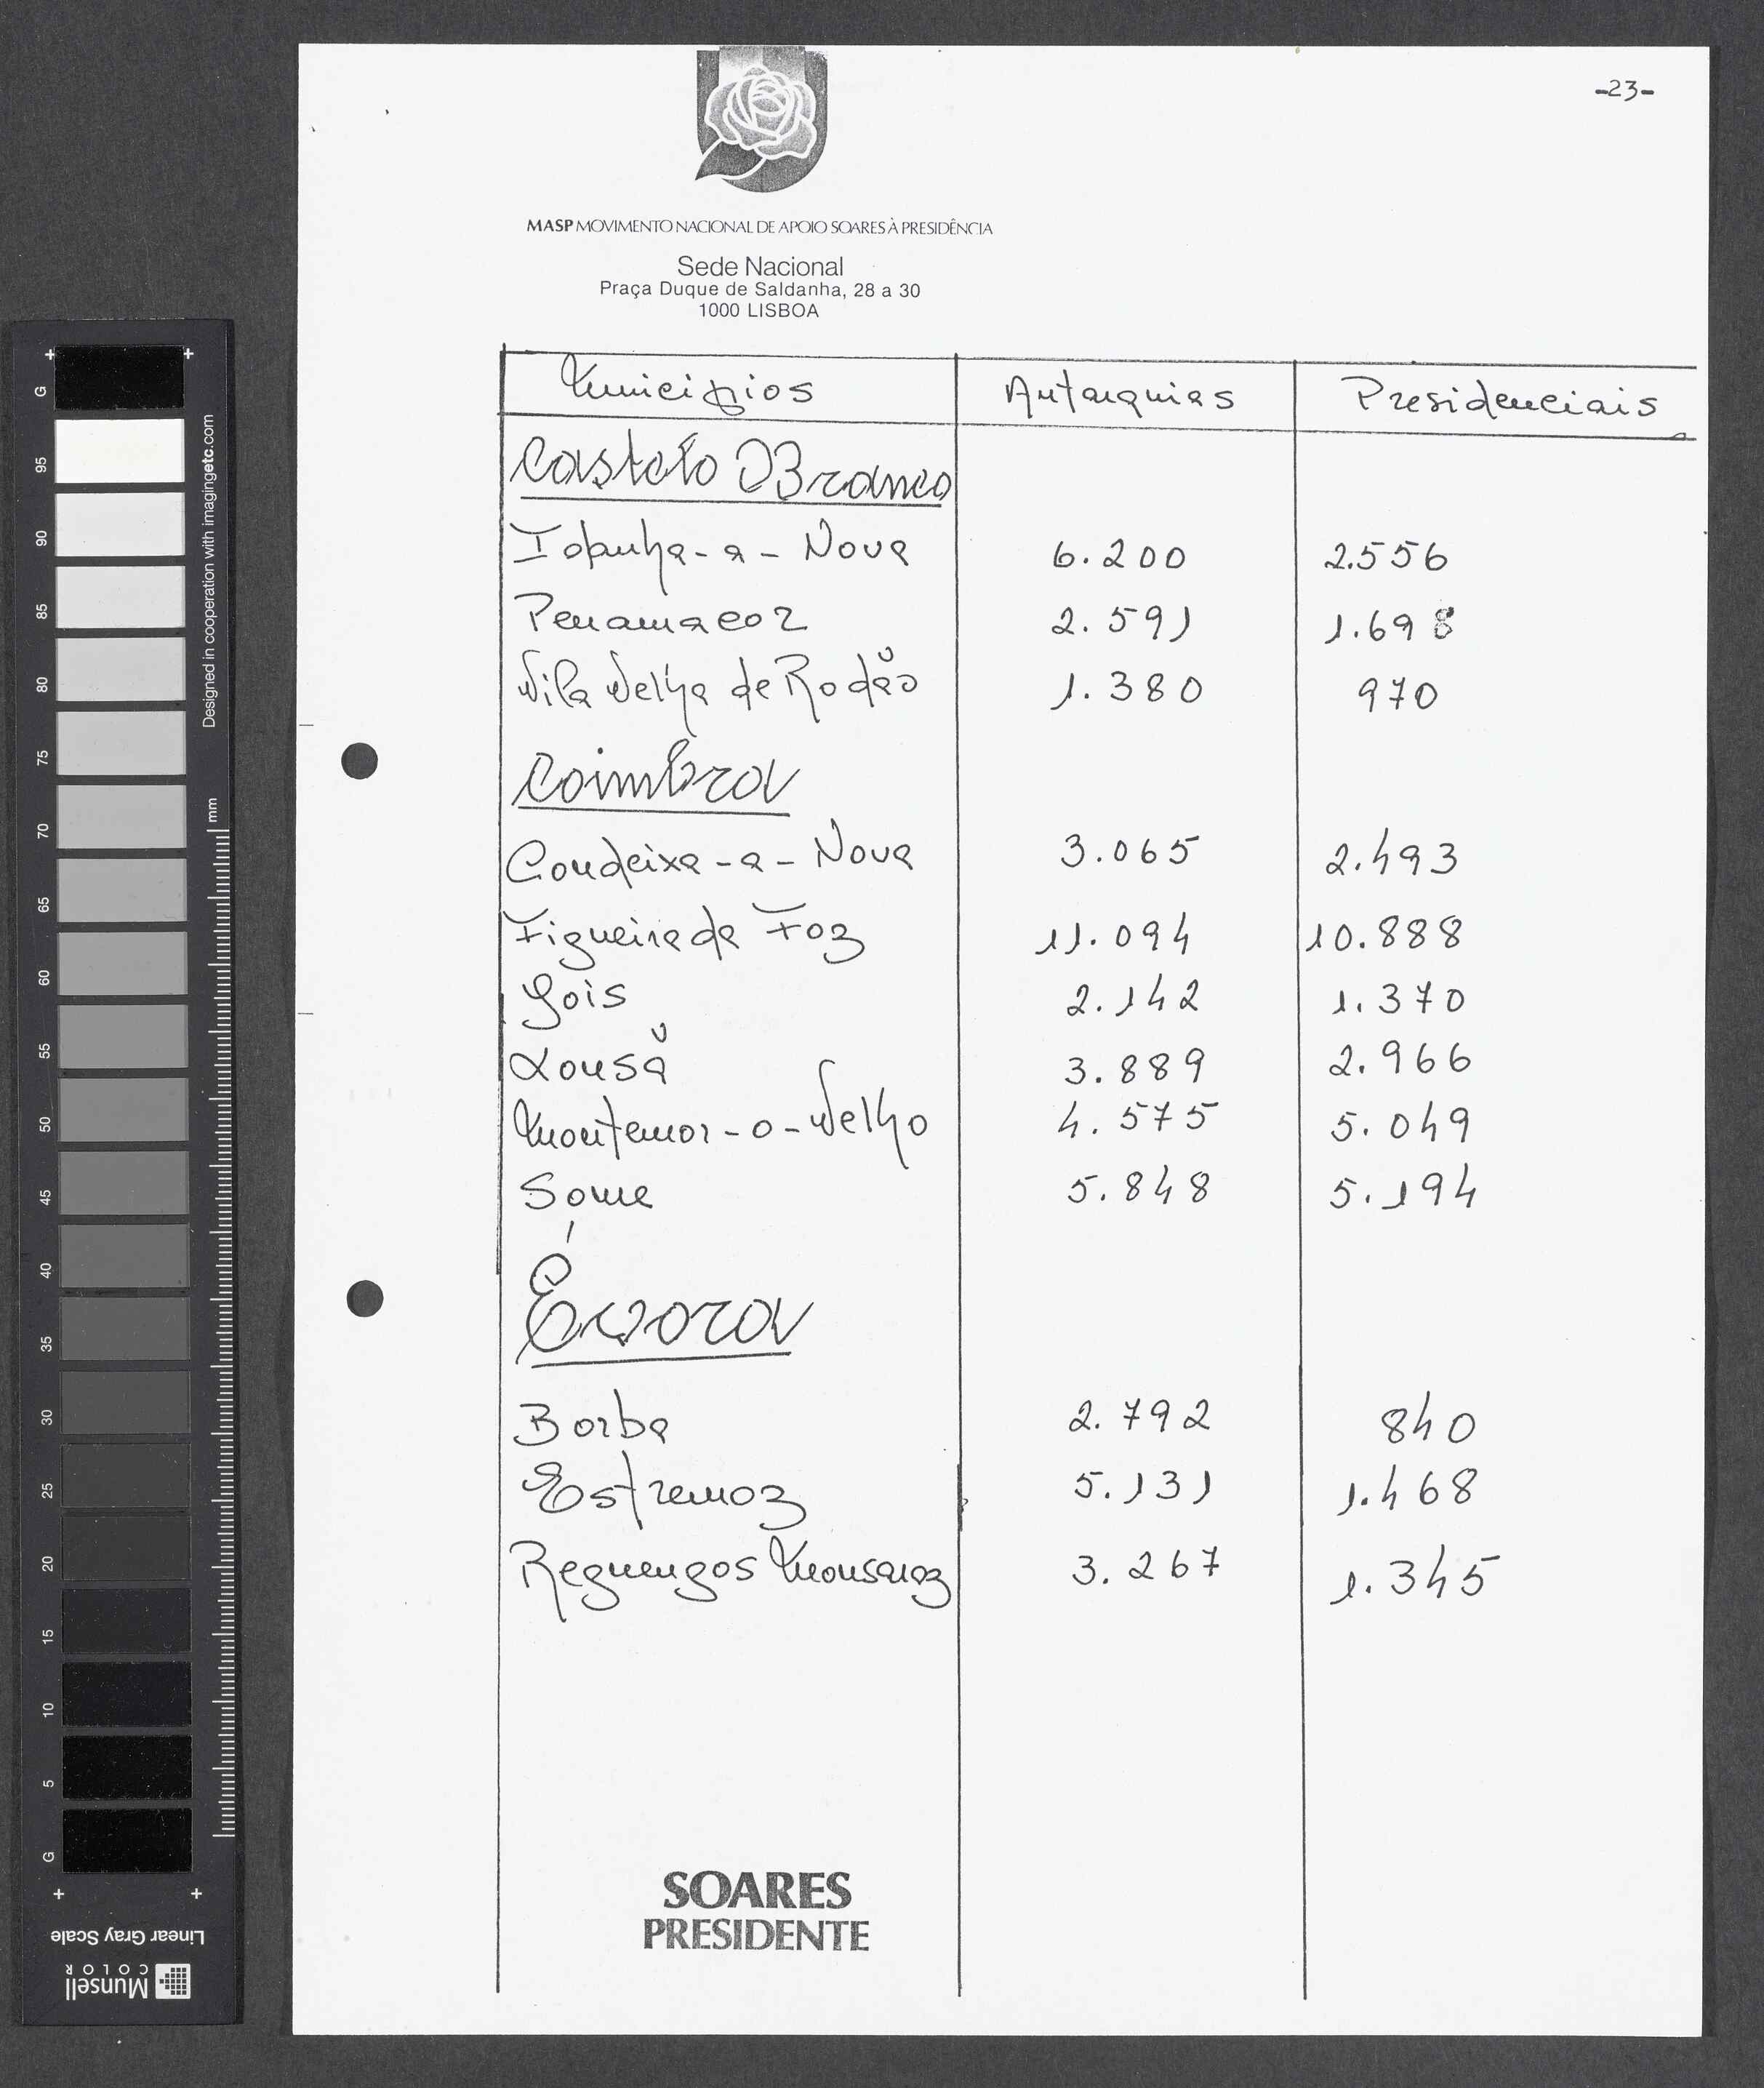 -23-
MASP MOVIMENTO NACIONAL DE APOIO SOARES À PRESIDÊNCIA
Sede Nacional
Praça Duque de Saldanha, 28 a 30
1000 LISBOA
Municípios Autarquias Presidenciais
Castelo Branco
Idanha-a-Nova 6.200 2.556
Penamacor 2.591 1.698
Vila Velha de Rodão 1.380 970
Coimbra
Condeixa-a-Nova 3.065 2.493
Figueira da Foz 11.094 10.888
Gois 2.142 1.370
Lousã 3.889 2.966
Montemor-o-Velho 4.575 5.049
Soure 5.848 5.194
Évora
Borba 2.792 840
Estremoz 5.131 1.468
Reguengos Monsaraz 3.267 1.345
SOARES
PRESIDENTE
G 95 90 85 80 75 70 65 60 55 50 45 40 35 30 25 20 15 10 5 G
Designed in cooperation with imagingetc.com
mm
Linear Gray Scale
Munsell
COLOR